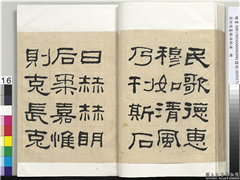 民歌德惠
穆如清風
乃刊斯石
曰赫赫明
后柔嘉惟
則克長克
16